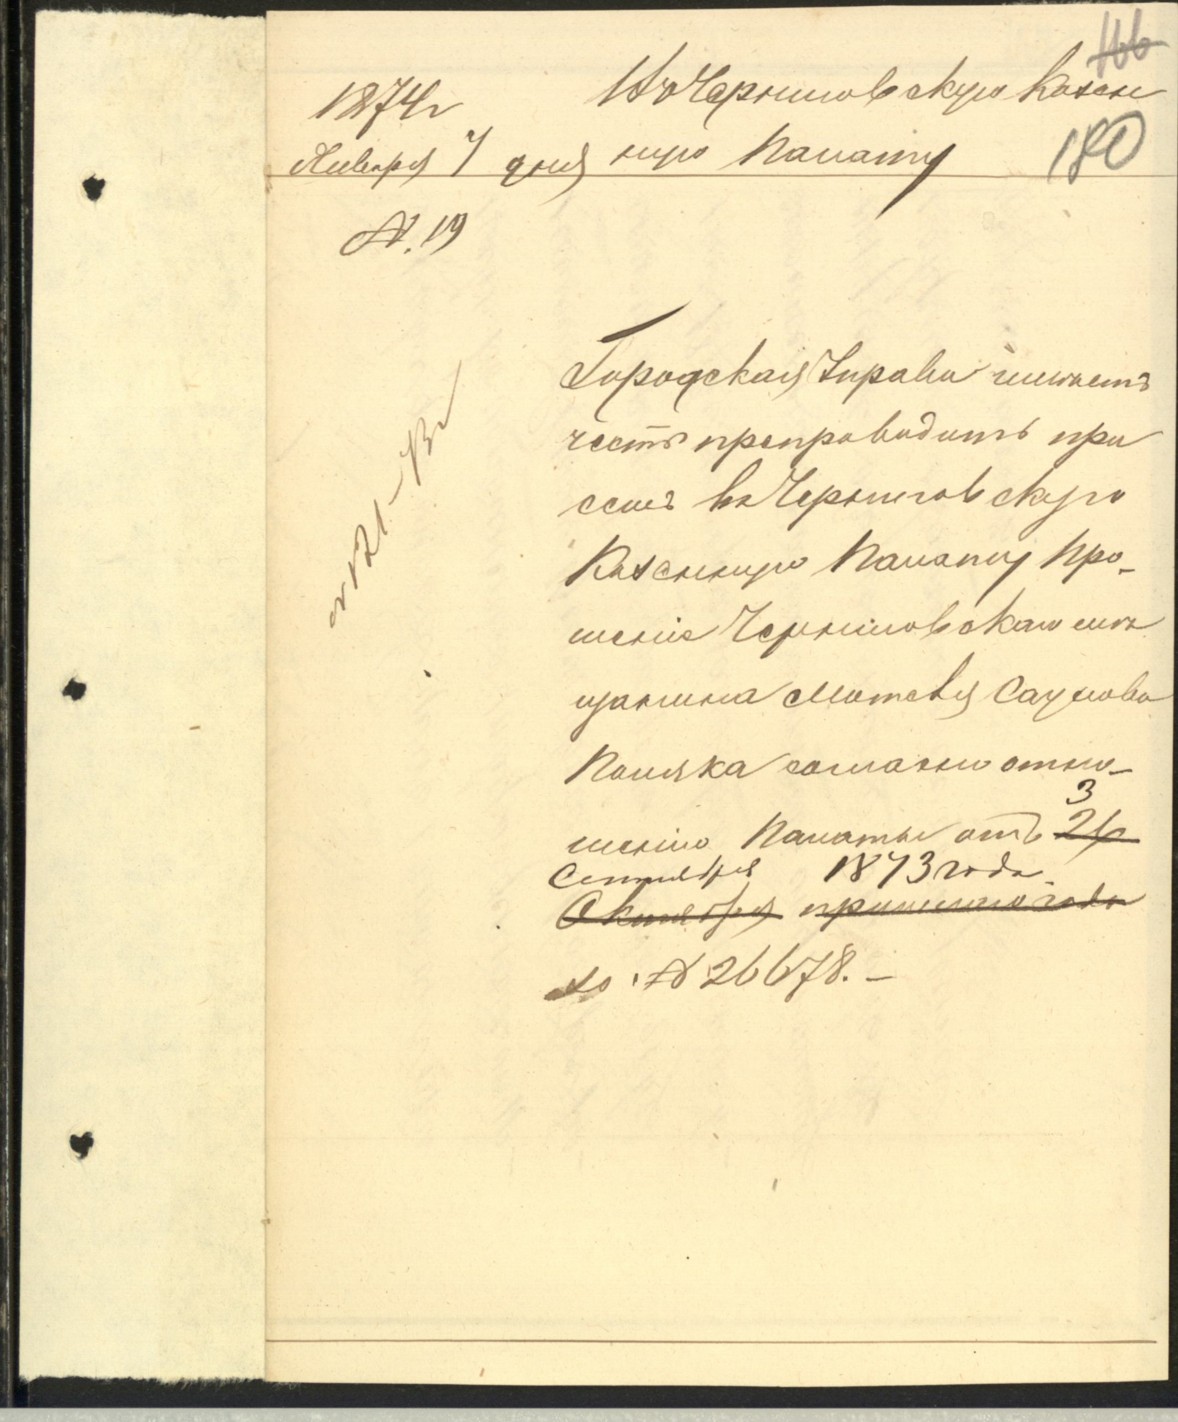 166
1874 г
Въ Черниговскую Казен
Января 7 дня
ную Палату
180
№. 19
Городская Управа имѣетъ
честь препроводить при
семъ въ Черниговскую
Казенную Палату Про-
шеніе Черниговскаго мѣ
щанина Матвѣя Саулова
Поляка согласно отно-
3
шенію Палаты отъ 26
Сентября 1873 года
Октября прошлаго года
за № 26678. –